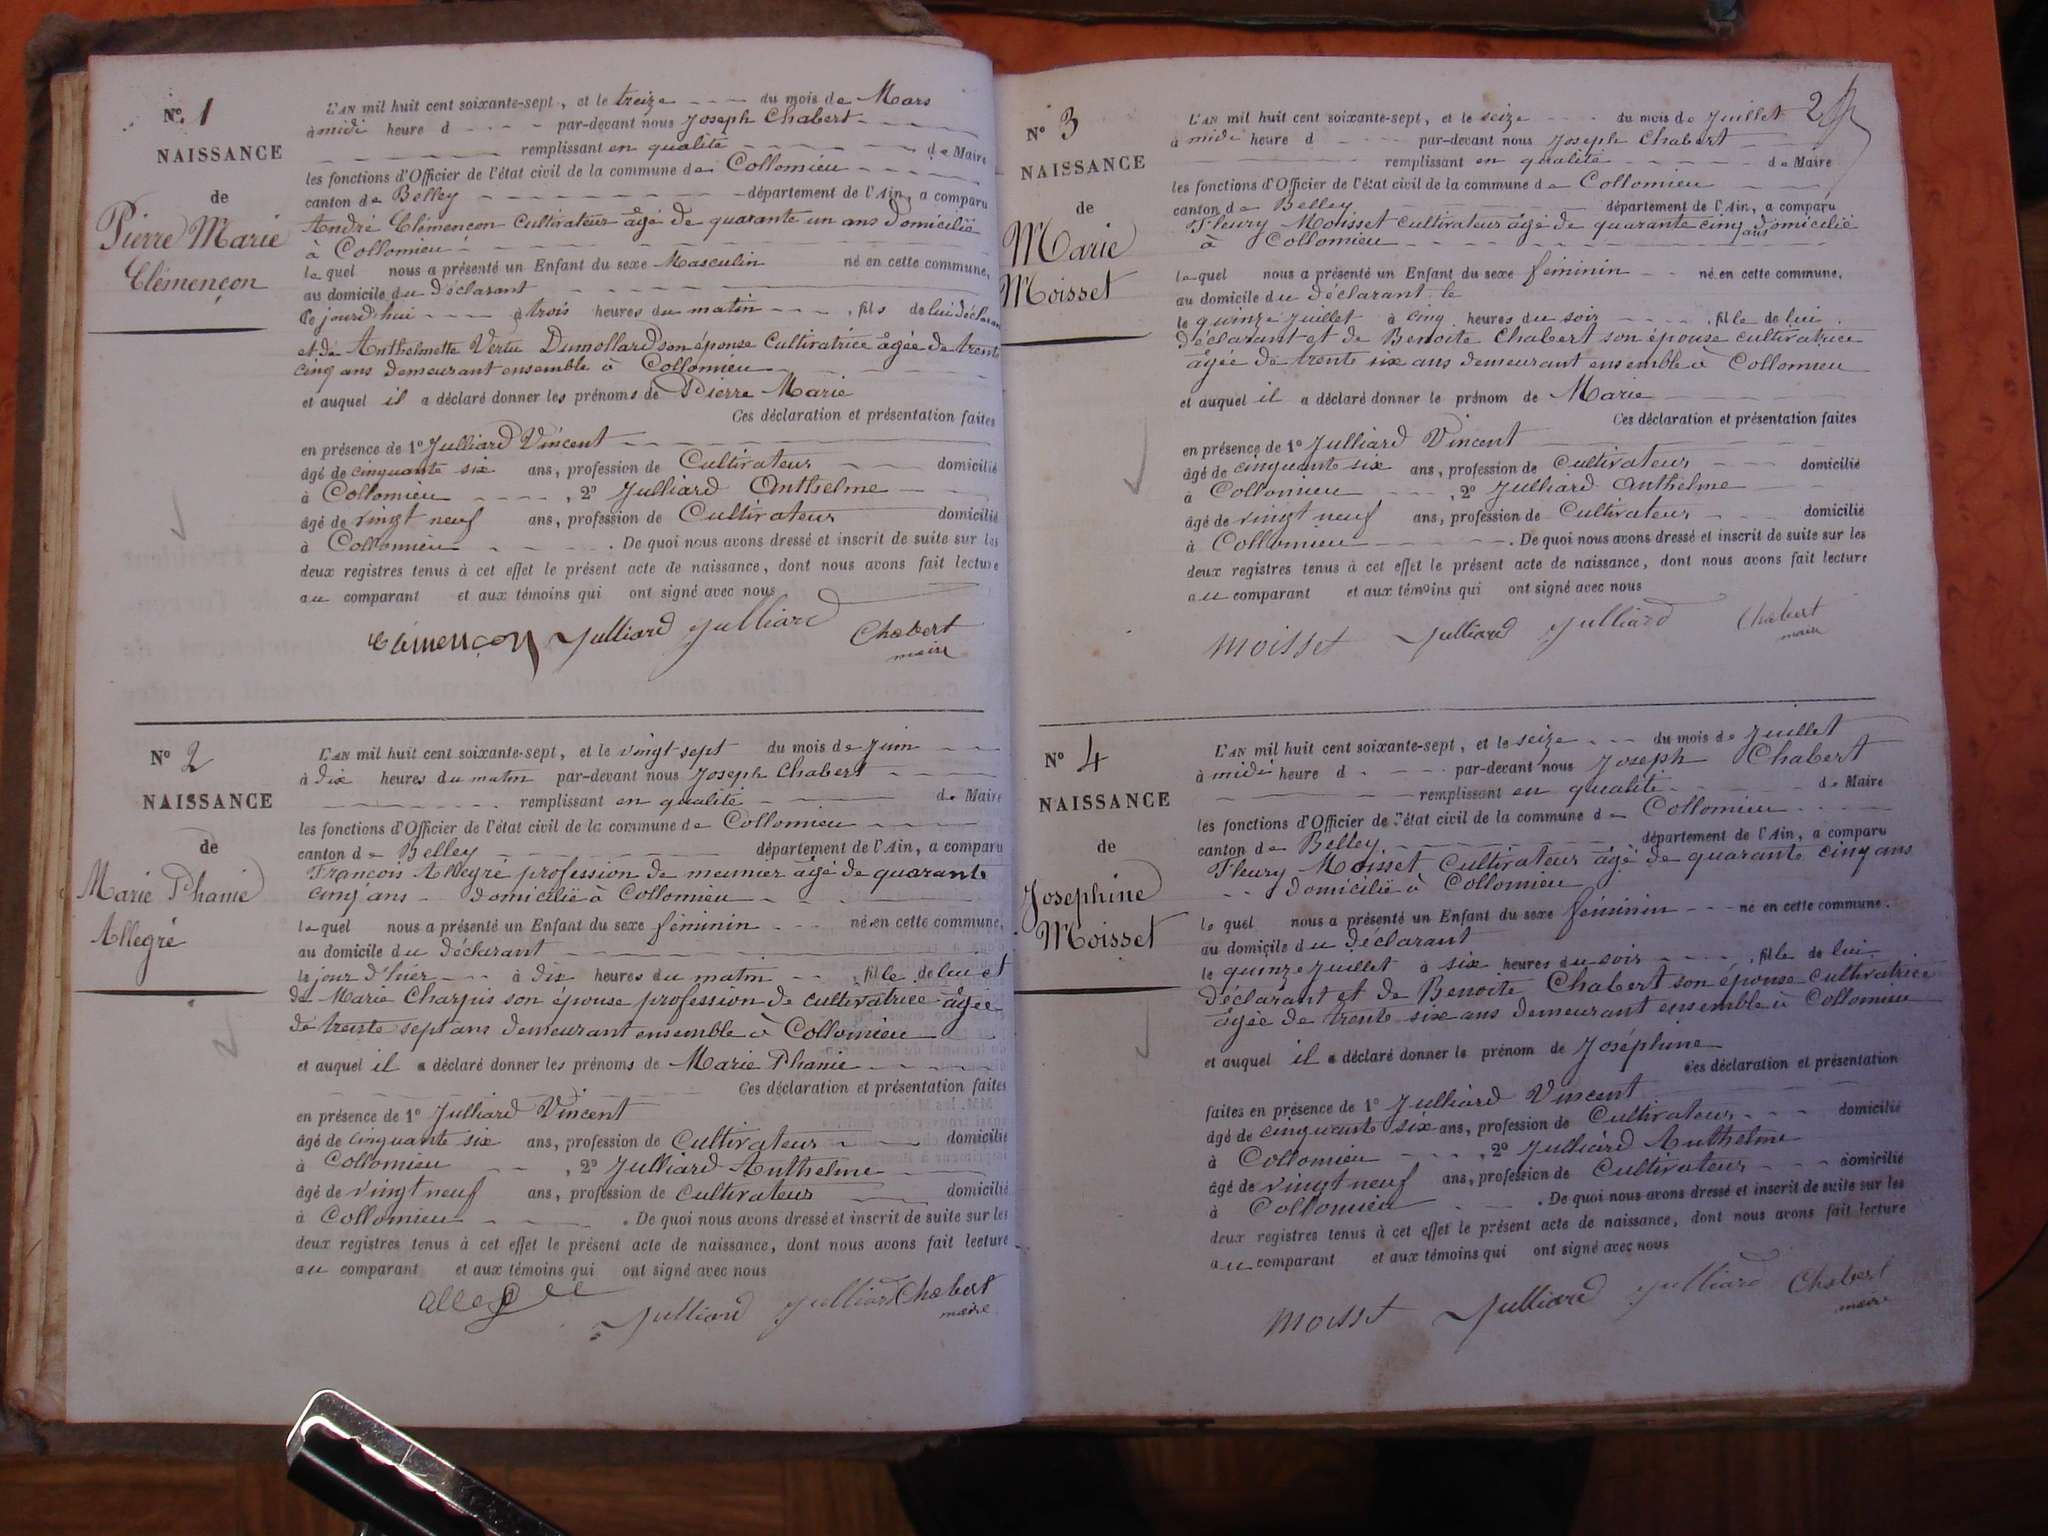 N.º 1
NAISSANCE
de
Pierre Marie
Clémençon
L'AN mil huit cent soixante-sept, et le treize - - - du mois de Mars
à midi heure d - - - par-devant nous Joseph Chabert
remplissant en qualité de Maire
les fonctions d'Officier de l'état civil de la commune de Collomieu
canton de Belley département de l'Ain, a comparu
André Clémençon Cultivateur âgé de quarante un ans domicilié
à Collomieu
lequel nous a présenté un Enfant du sexe Masculin né en cette commune,
au domicile du déclarant
ce jourd'hui à trois heures du matin, fils de lui déclarant
et de Anthelmette Vertu Dumollard son épouse Cultivatrice âgée de trente
cinq ans demeurant ensemble à Collomieu
et auquel il a déclaré donner les prénoms de Pierre Marie
Ces déclaration et présentation faites
en présence de 1º Julliard Vincent
âgé de cinquante six ans, profession de Cultivateur domicilié
à Collomieu, 2º Julliard Anthelme
âgé de vingt neuf ans, profession de Cultivateur domicilié
à Collomieu. De quoi nous avons dressé et inscrit de suite sur les
deux registres tenus à cet effet le présent acte de naissance, dont nous avons fait lecture
au comparant et aux témoins qui ont signé avec nous
Clémençon Julliard Julliard Chabert
maire
Nº 2
NAISSANCE
de
Marie Phanie
Allegré
L'AN mil huit cent soixante-sept, et le vingt sept du mois de Juin
à dix heures du matin par-devant nous Joseph Chabert
remplissant en qualité de Maire
les fonctions d'Officier de l'état civil de la commune de Collomieu
canton de Belley département de l'Ain, a comparu
François Allegré profession de meunier âgé de quarante
cinq ans domicilié à Collomieu
lequel nous a présenté un Enfant du sexe féminin né en cette commune,
au domicile du déclarant
le jour d'hier à dix heures du matin, fille de lui et
de Marie Charpis son épouse profession de cultivatrice âgée
de trente sept ans demeurant ensemble à Collomieu
et auquel il a déclaré donner les prénoms de Marie Phanie
Ces déclaration et présentation faites
en présence de 1º Julliard Vincent
âgé de cinquante six ans, profession de Cultivateur domicilié
à Collomieu, 2º Julliard Anthelme
âgé de vingt neuf ans, profession de Cultivateur domicilié
à Collomieu. De quoi nous avons dressé et inscrit de suite sur les
deux registres tenus à cet effet le présent acte de naissance, dont nous avons fait lecture
au comparant et aux témoins qui ont signé avec nous
Julliard Julliard Chabert
maire
2
Nº 3
NAISSANCE
de
Marie
Moisset
L'AN mil huit cent soixante-sept, et le seize du mois de Juillet
à midi heure d par-devant nous Joseph Chabert
remplissant en qualité de Maire
les fonctions d'Officier de l'état civil de la commune de Collomieu
canton de Belley département de l'Ain, a comparu
Fleury Moisset cultivateur âgé de quarante cinq ans domicilié
à Collomieu
lequel nous a présenté un Enfant du sexe féminin né en cette commune,
au domicile du déclarant le
le quinze juillet à cinq heures du soir, fille de lui
déclarant et de Benoite Chabert son épouse cultivatrice
âgée de trente six ans demeurant ensemble à Collomieu
et auquel il a déclaré donner le prénom de Marie
Ces déclaration et présentation faites
en présence de 1º Julliard Vincent
âgé de cinquante six ans, profession de Cultivateur domicilié
à Collomieu, 2º Julliard Anthelme
âgé de vingt neuf ans, profession de Cultivateur domicilié
à Collomieu. De quoi nous avons dressé et inscrit de suite sur les
deux registres tenus à cet effet le présent acte de naissance, dont nous avons fait lecture
au comparant et aux témoins qui ont signé avec nous
Moisset Julliard Julliard Chabert
maire
Nº 4
NAISSANCE
de
Josephine
Moisset
L'AN mil huit cent soixante-sept, et le seize du mois de Juillet
à midi heure d par-devant nous Joseph Chabert
remplissant en qualité de Maire
les fonctions d'Officier de l'état civil de la commune de Collomieu
canton de Belley département de l'Ain, a comparu
Fleury Moisset Cultivateur âgé de quarante cinq ans
domicilié à Collomieu
lequel nous a présenté un Enfant du sexe féminin né en cette commune.
au domicile du déclarant
le quinze juillet à six heures du soir, fille de lui
déclarant et de Benoite Chabert son épouse cultivatrice
âgée de trente six ans demeurant ensemble à Collomieu
et auquel il a déclaré donner le prénom de Joséphine
Ces déclaration et présentation
faites en présence de 1º Julliard Vincent
âgé de cinquante six ans, profession de Cultivateur domicilié
à Collomieu, 2º Julliard Anthelme
âgé de vingt neuf ans, profession de Cultivateur domicilié
à Collomieu. De quoi nous avons dressé et inscrit de suite sur les
deux registres tenus à cet effet le présent acte de naissance, dont nous avons fait lecture
au comparant et aux témoins qui ont signé avec nous
Moisset Julliard Julliard Chabert
maire